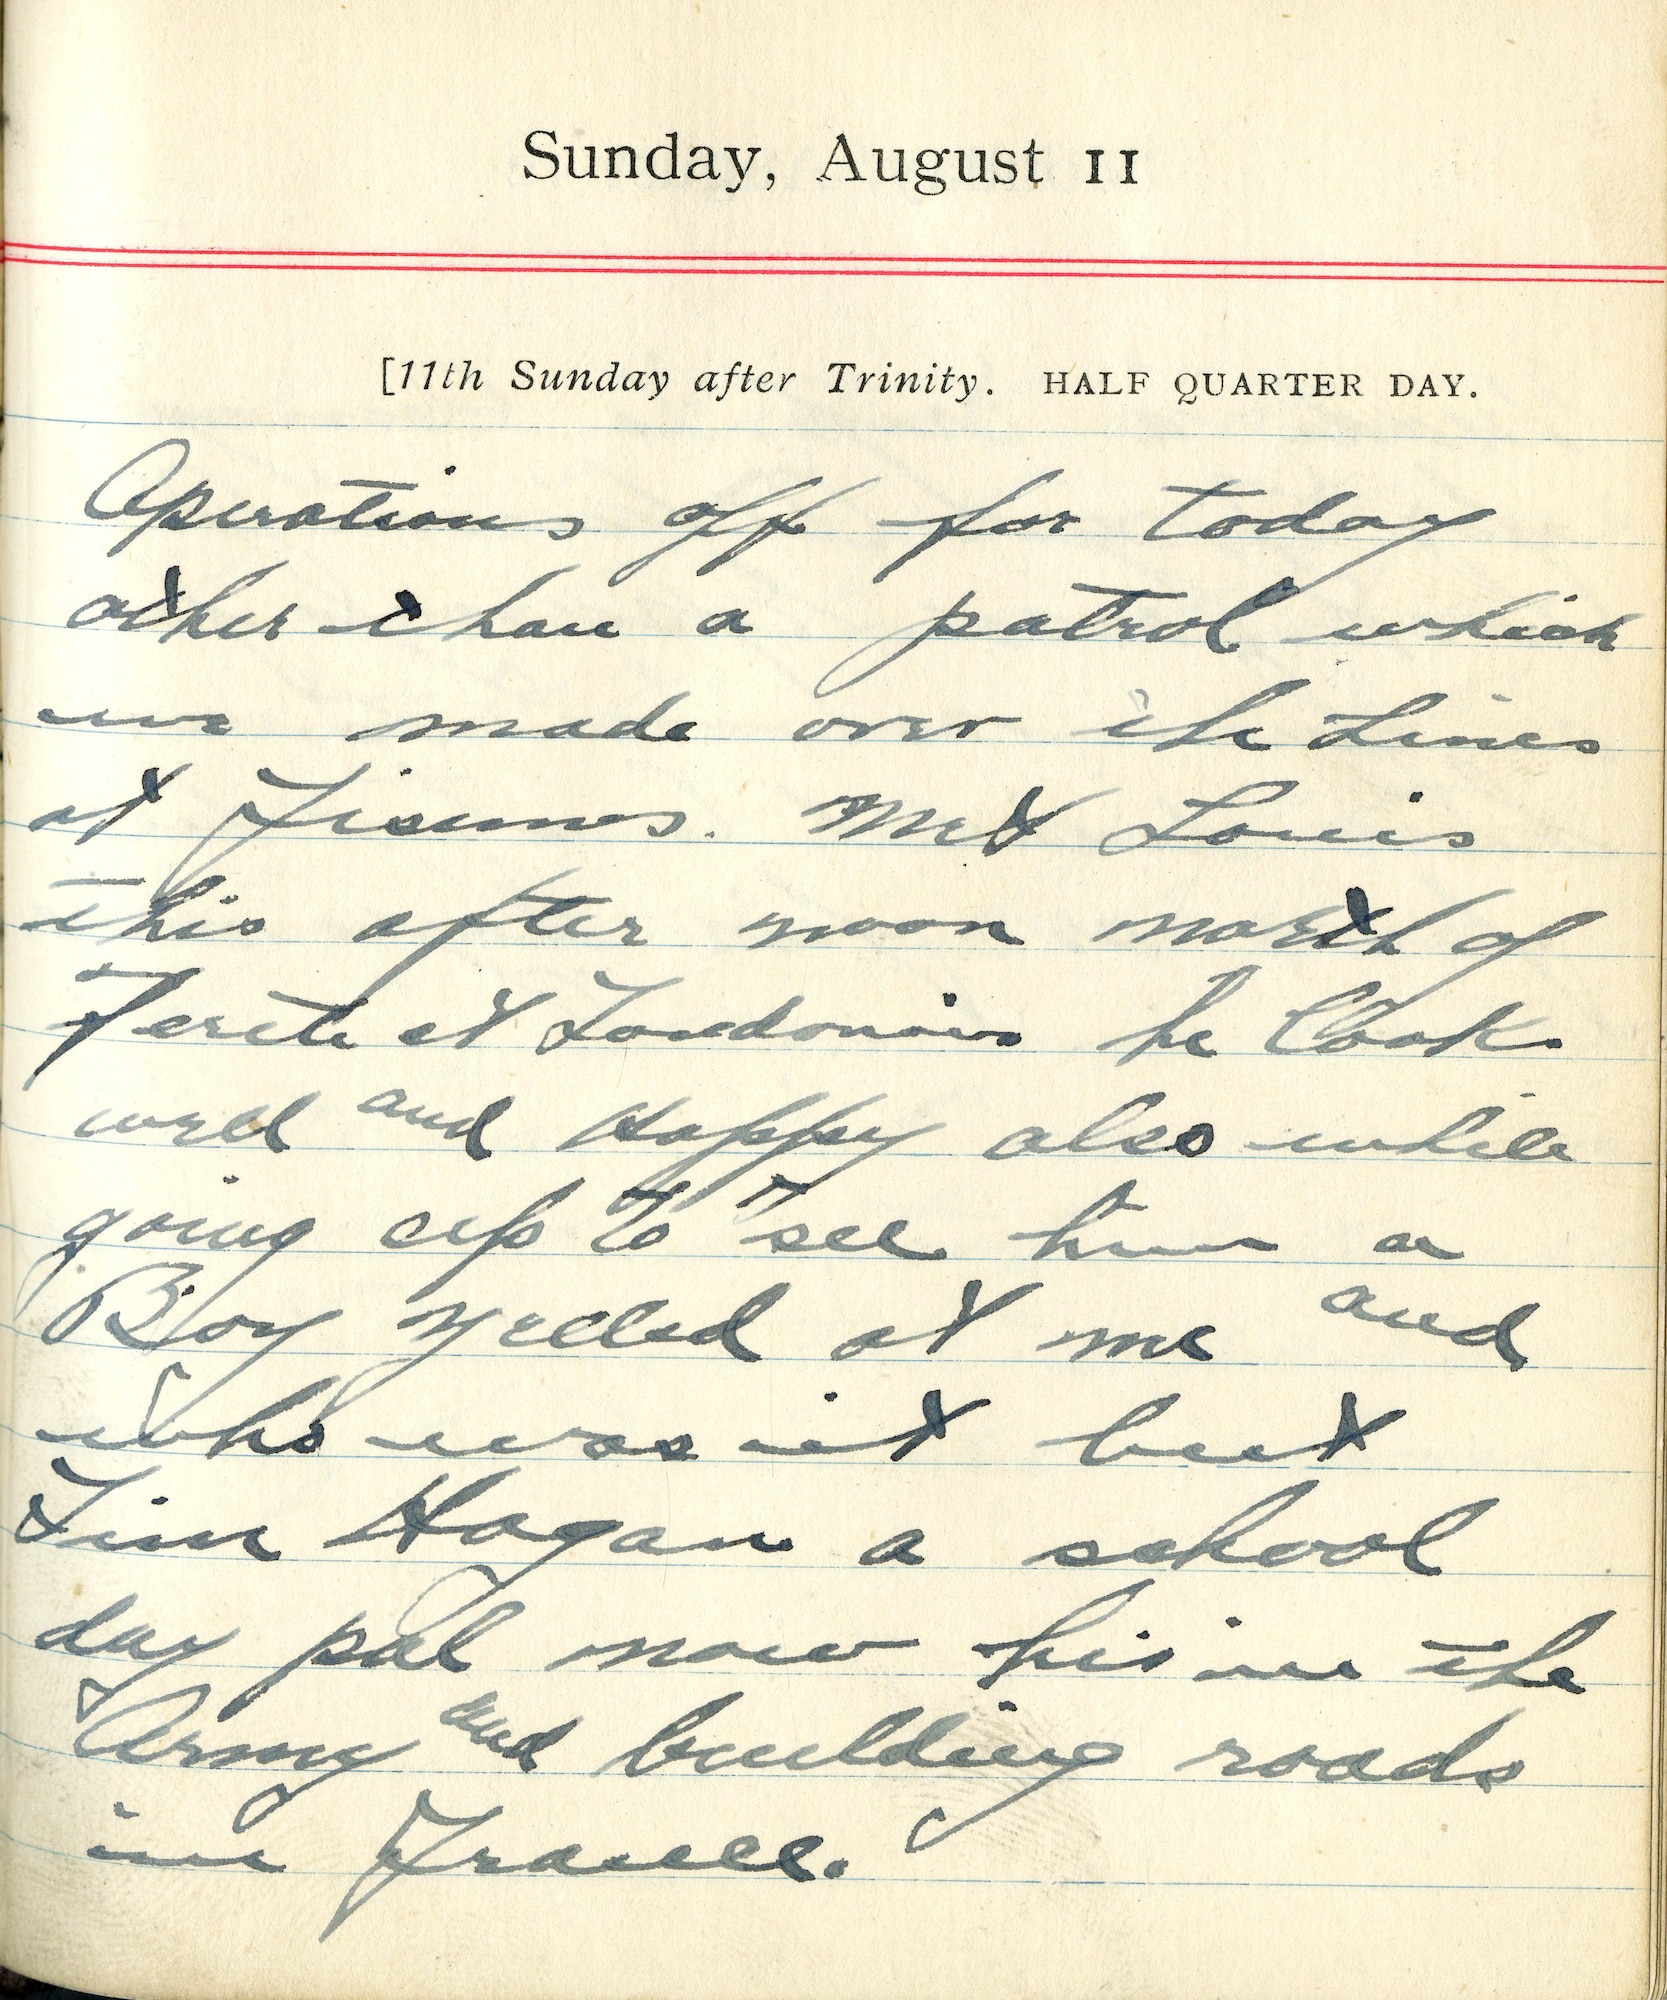 Sunday, August 11
[11th Sunday after Trinity. HALF QUARTER DAY.
Operations off for today
other than a patrol which
we made over the Lines
at Fismes. Met Louis
this after noon north of
Ferete et he look
well and Happy also while
going up to see him a
Boy yelled at me and
who was it but
Tim Hogan a school
day pal now his in the
Army and building roads
in France.